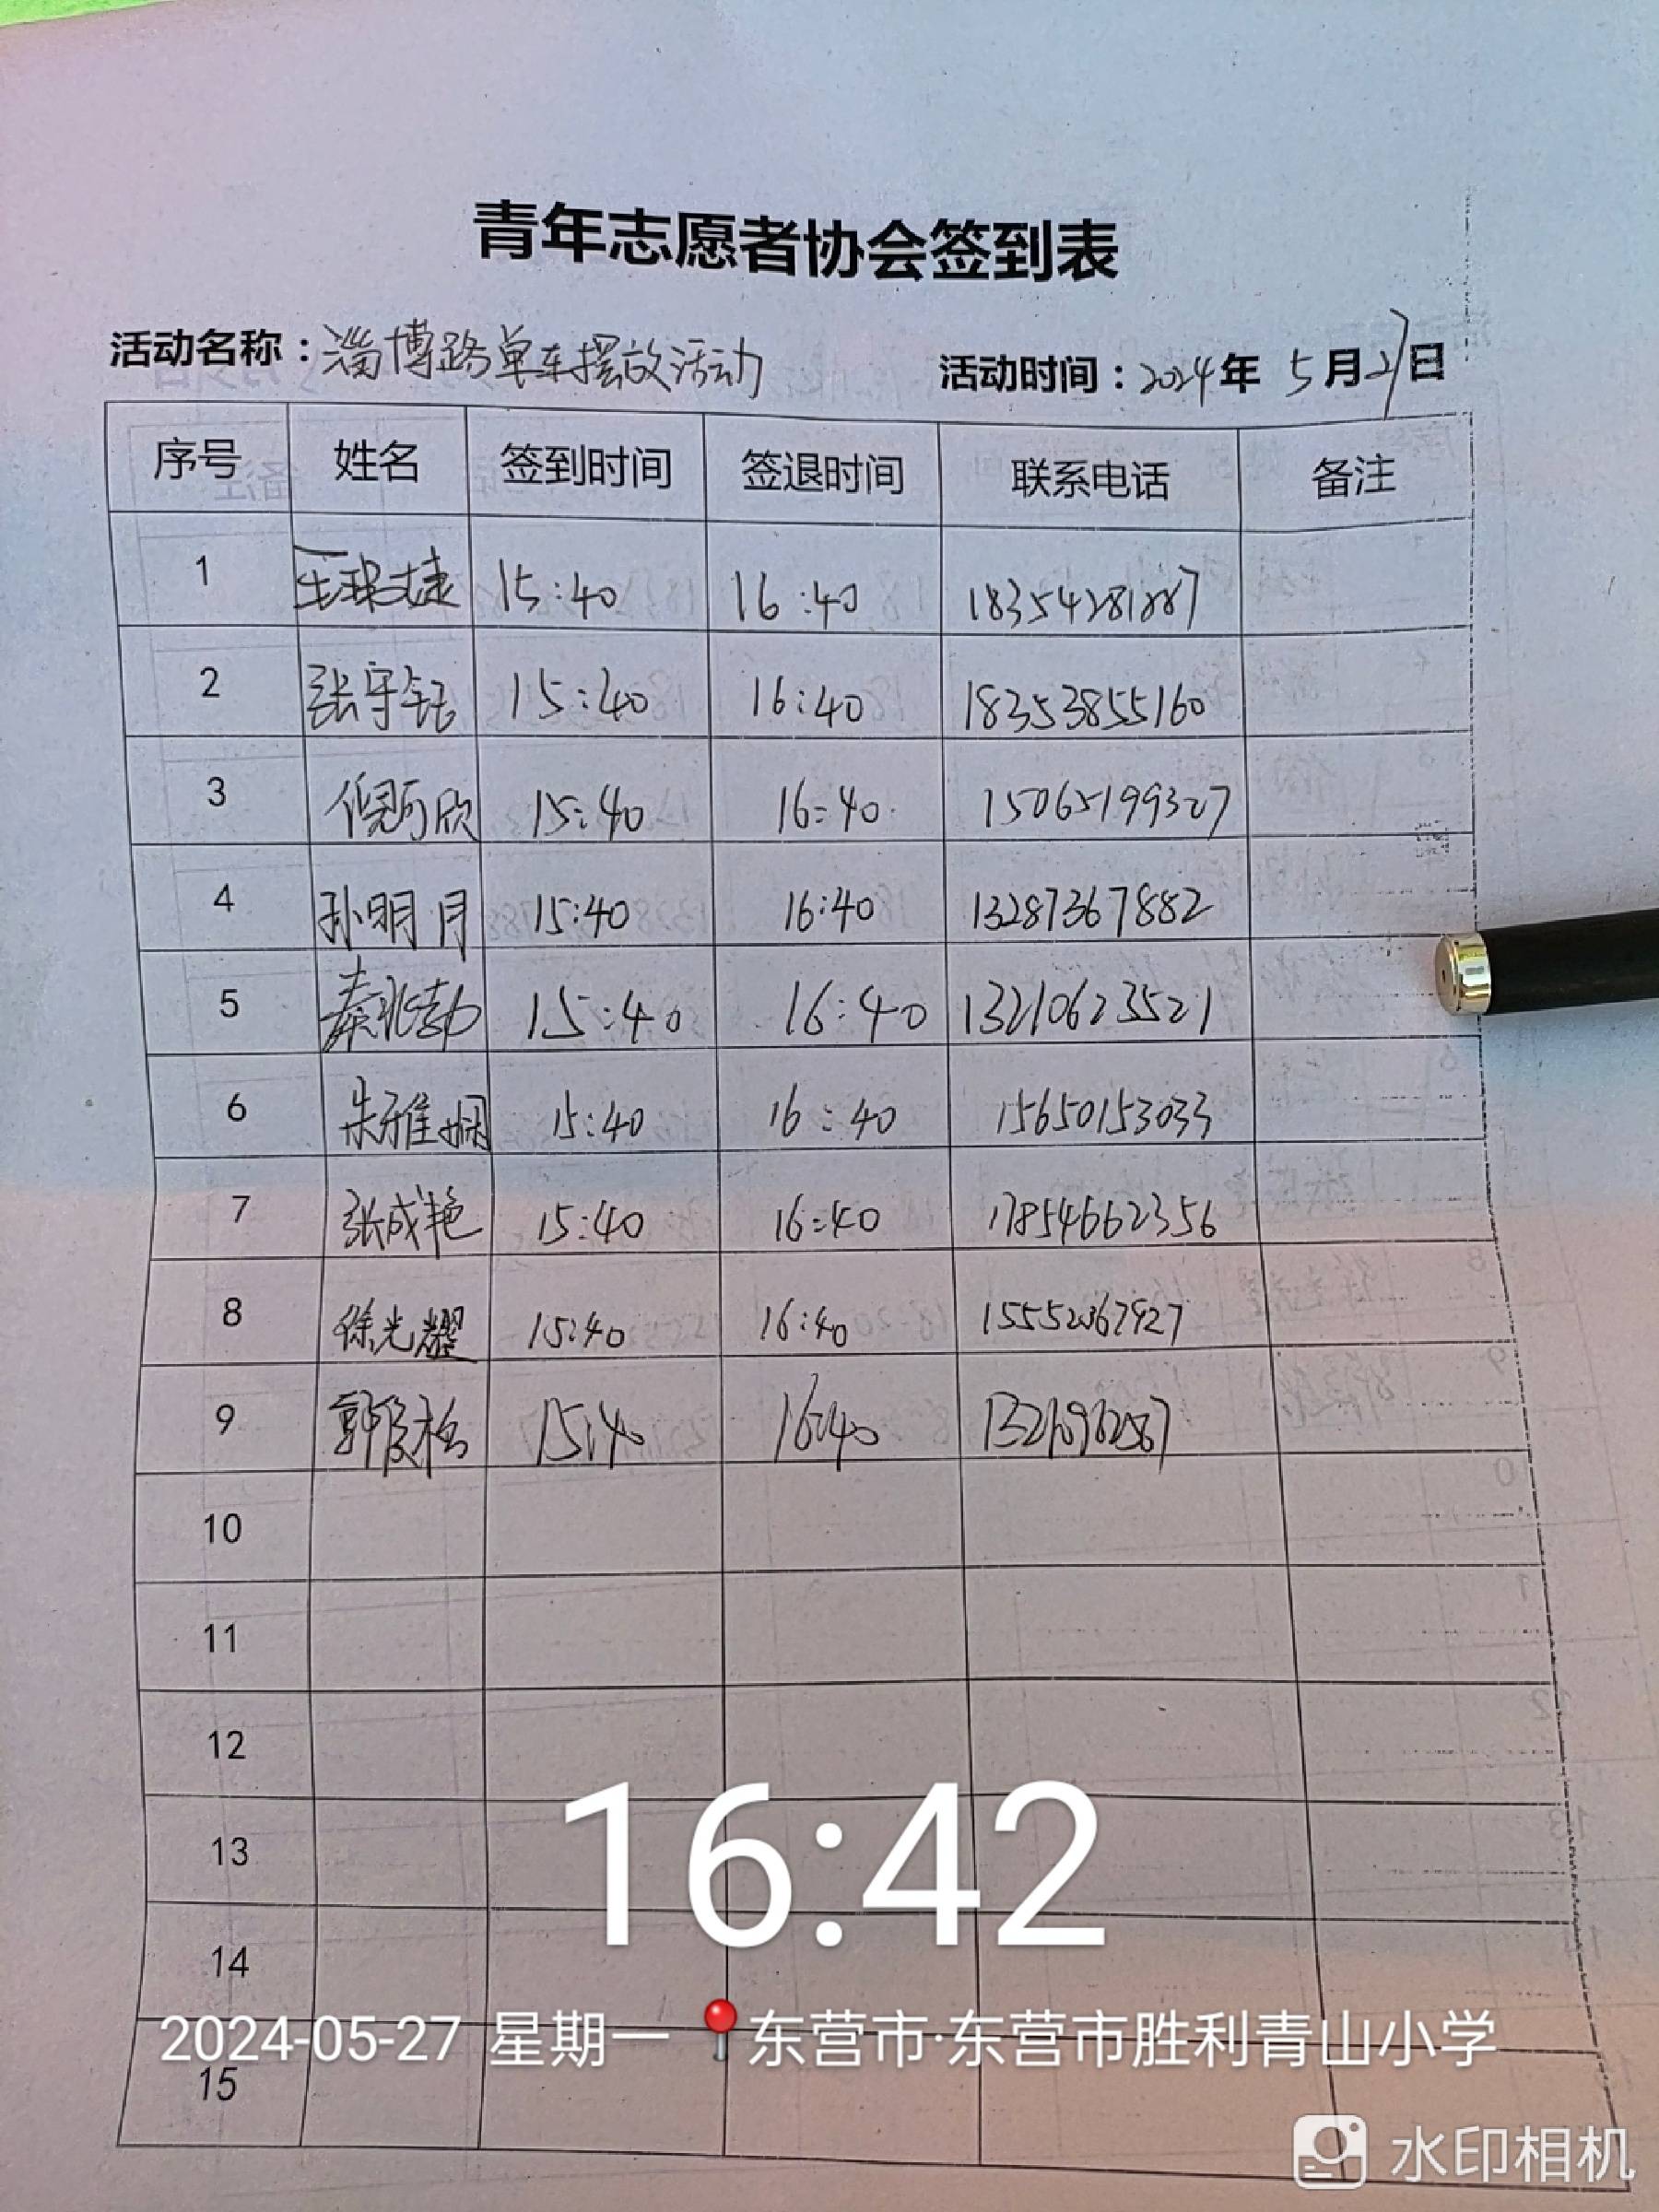 青年志愿者协会签到表
活动名称：淄博路单车摆放活动 活动时间：2024年 5月27日
序号 姓名 签到时间 签退时间 联系电话 备注
1 15:40 16:40
2 张守钰 15:40 16:40 18353855160
3 倪可欣 15:40 16:40 15065199327
4 孙明月 15:40 16:40 13287367882
5 秦兆勃 15:40 16:40 13210623521
6 朱雅娴 15:40 16:40 15650153033
7 张成艳 15:40 16:40 17854662356
8 徐光耀 15:40 16:40
9 15:40 16:40
10
11
12
13
14
15
16:42
2024-05-27 星期一 东营市·东营市胜利青山小学
水印相机